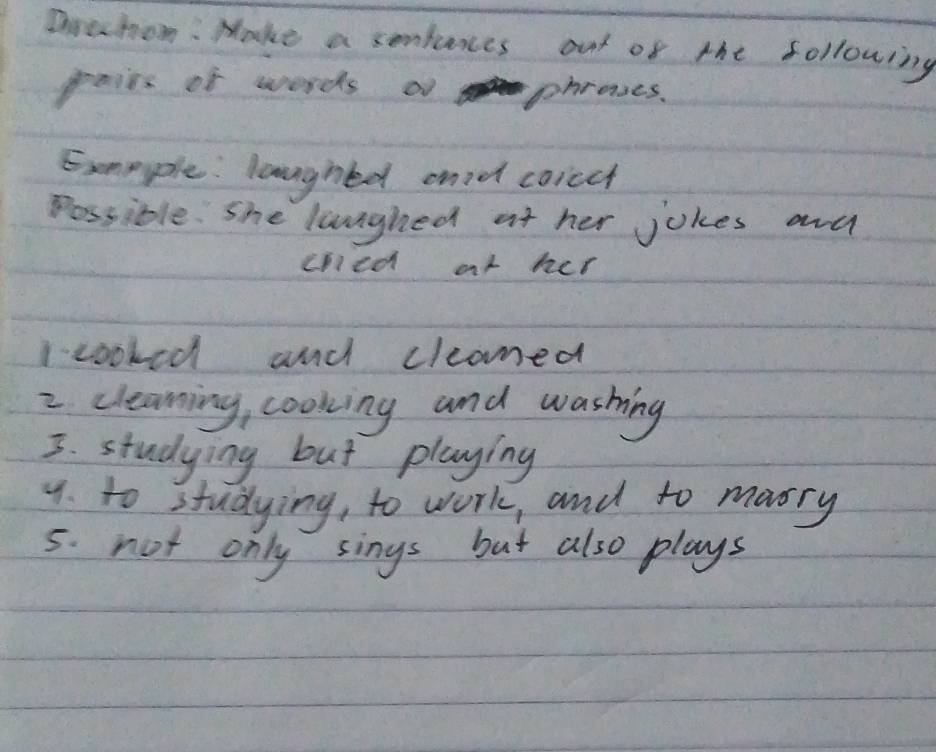 Direction: Make a sentences out of the following
pairs of words or phrases.
Example: laughed and cried
Possible: She laughed at her jokes and
cried at her
1. cooked and cleaned
2. cleaning, cooking and washing
3. studying but playing
4. to studying, to work, and to marry
5. not only sings but also plays